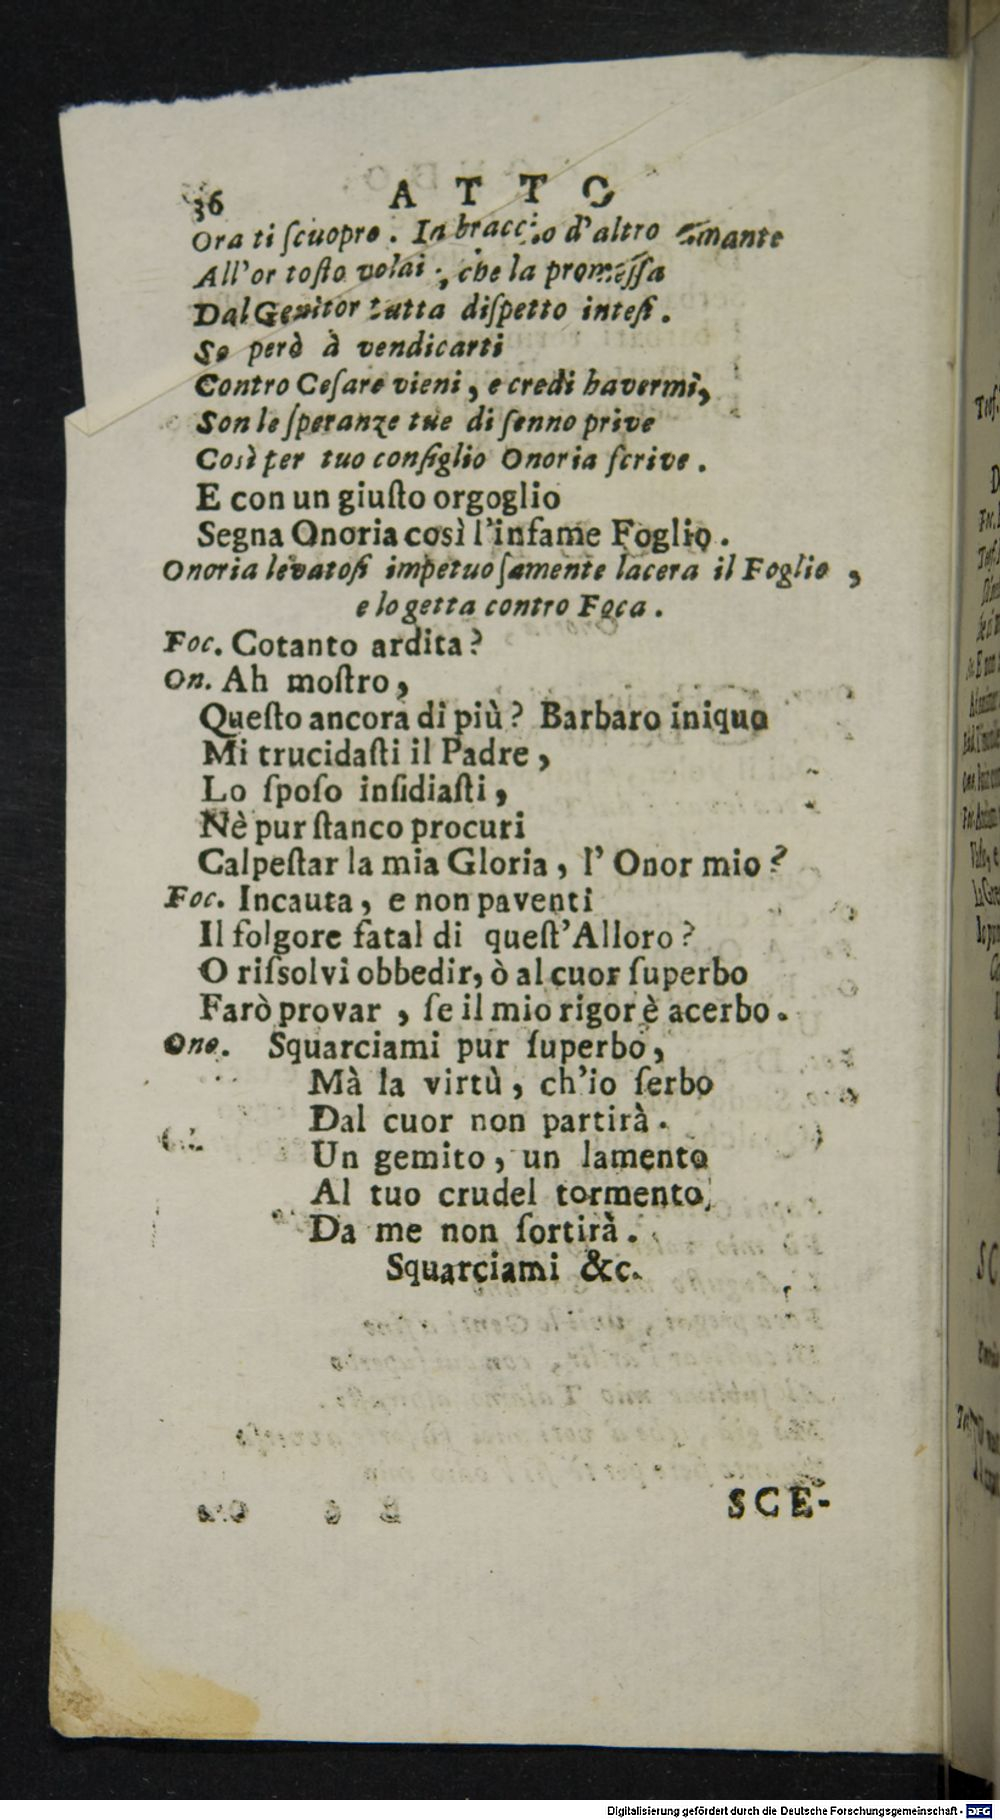 36 ATTO
Ora ti ſcuopro. In braccio d'altro amante
All'or toſto volai ; che la promeſſa
Dal Genitor tutta diſpetto inteſi.
Se però à vendicarti
Contro Ceſare vieni, e credi havermi,
Son le ſperanze tue di ſenno prive
Così per tuo conſiglio Onoria ſcrive.
E con un giuſto orgoglio
Segna Onoria così l'infame Foglio.
Onoria levatoſi impetuoſamente lacera il Foglio,
e lo getta contro Foca.
Foc. Cotanto ardita?
On. Ah moſtro,
Queſto ancora di più? Barbaro iniquo
Mi trucidaſti il Padre,
Lo ſpoſo inſidiaſti,
Nè pur ſtanco procuri
Calpeſtar la mia Gloria, l'Onor mio?
Foc. Incauta, e non paventi
Il folgore fatal di queſt'Alloro?
O riſsolvi obbedir, ò al cuor ſuperbo
Farò provar, ſe il mio rigor è acerbo.
Ono. Squarciami pur ſuperbo,
Mà la virtù, ch'io ſerbo
Dal cuor non partirà.
Un gemito, un lamento
Al tuo crudel tormento
Da me non ſortirà.
Squarciami &c.
SCE-
Digitalisierung gefördert durch die Deutsche Forschungsgemeinschaft - DFG